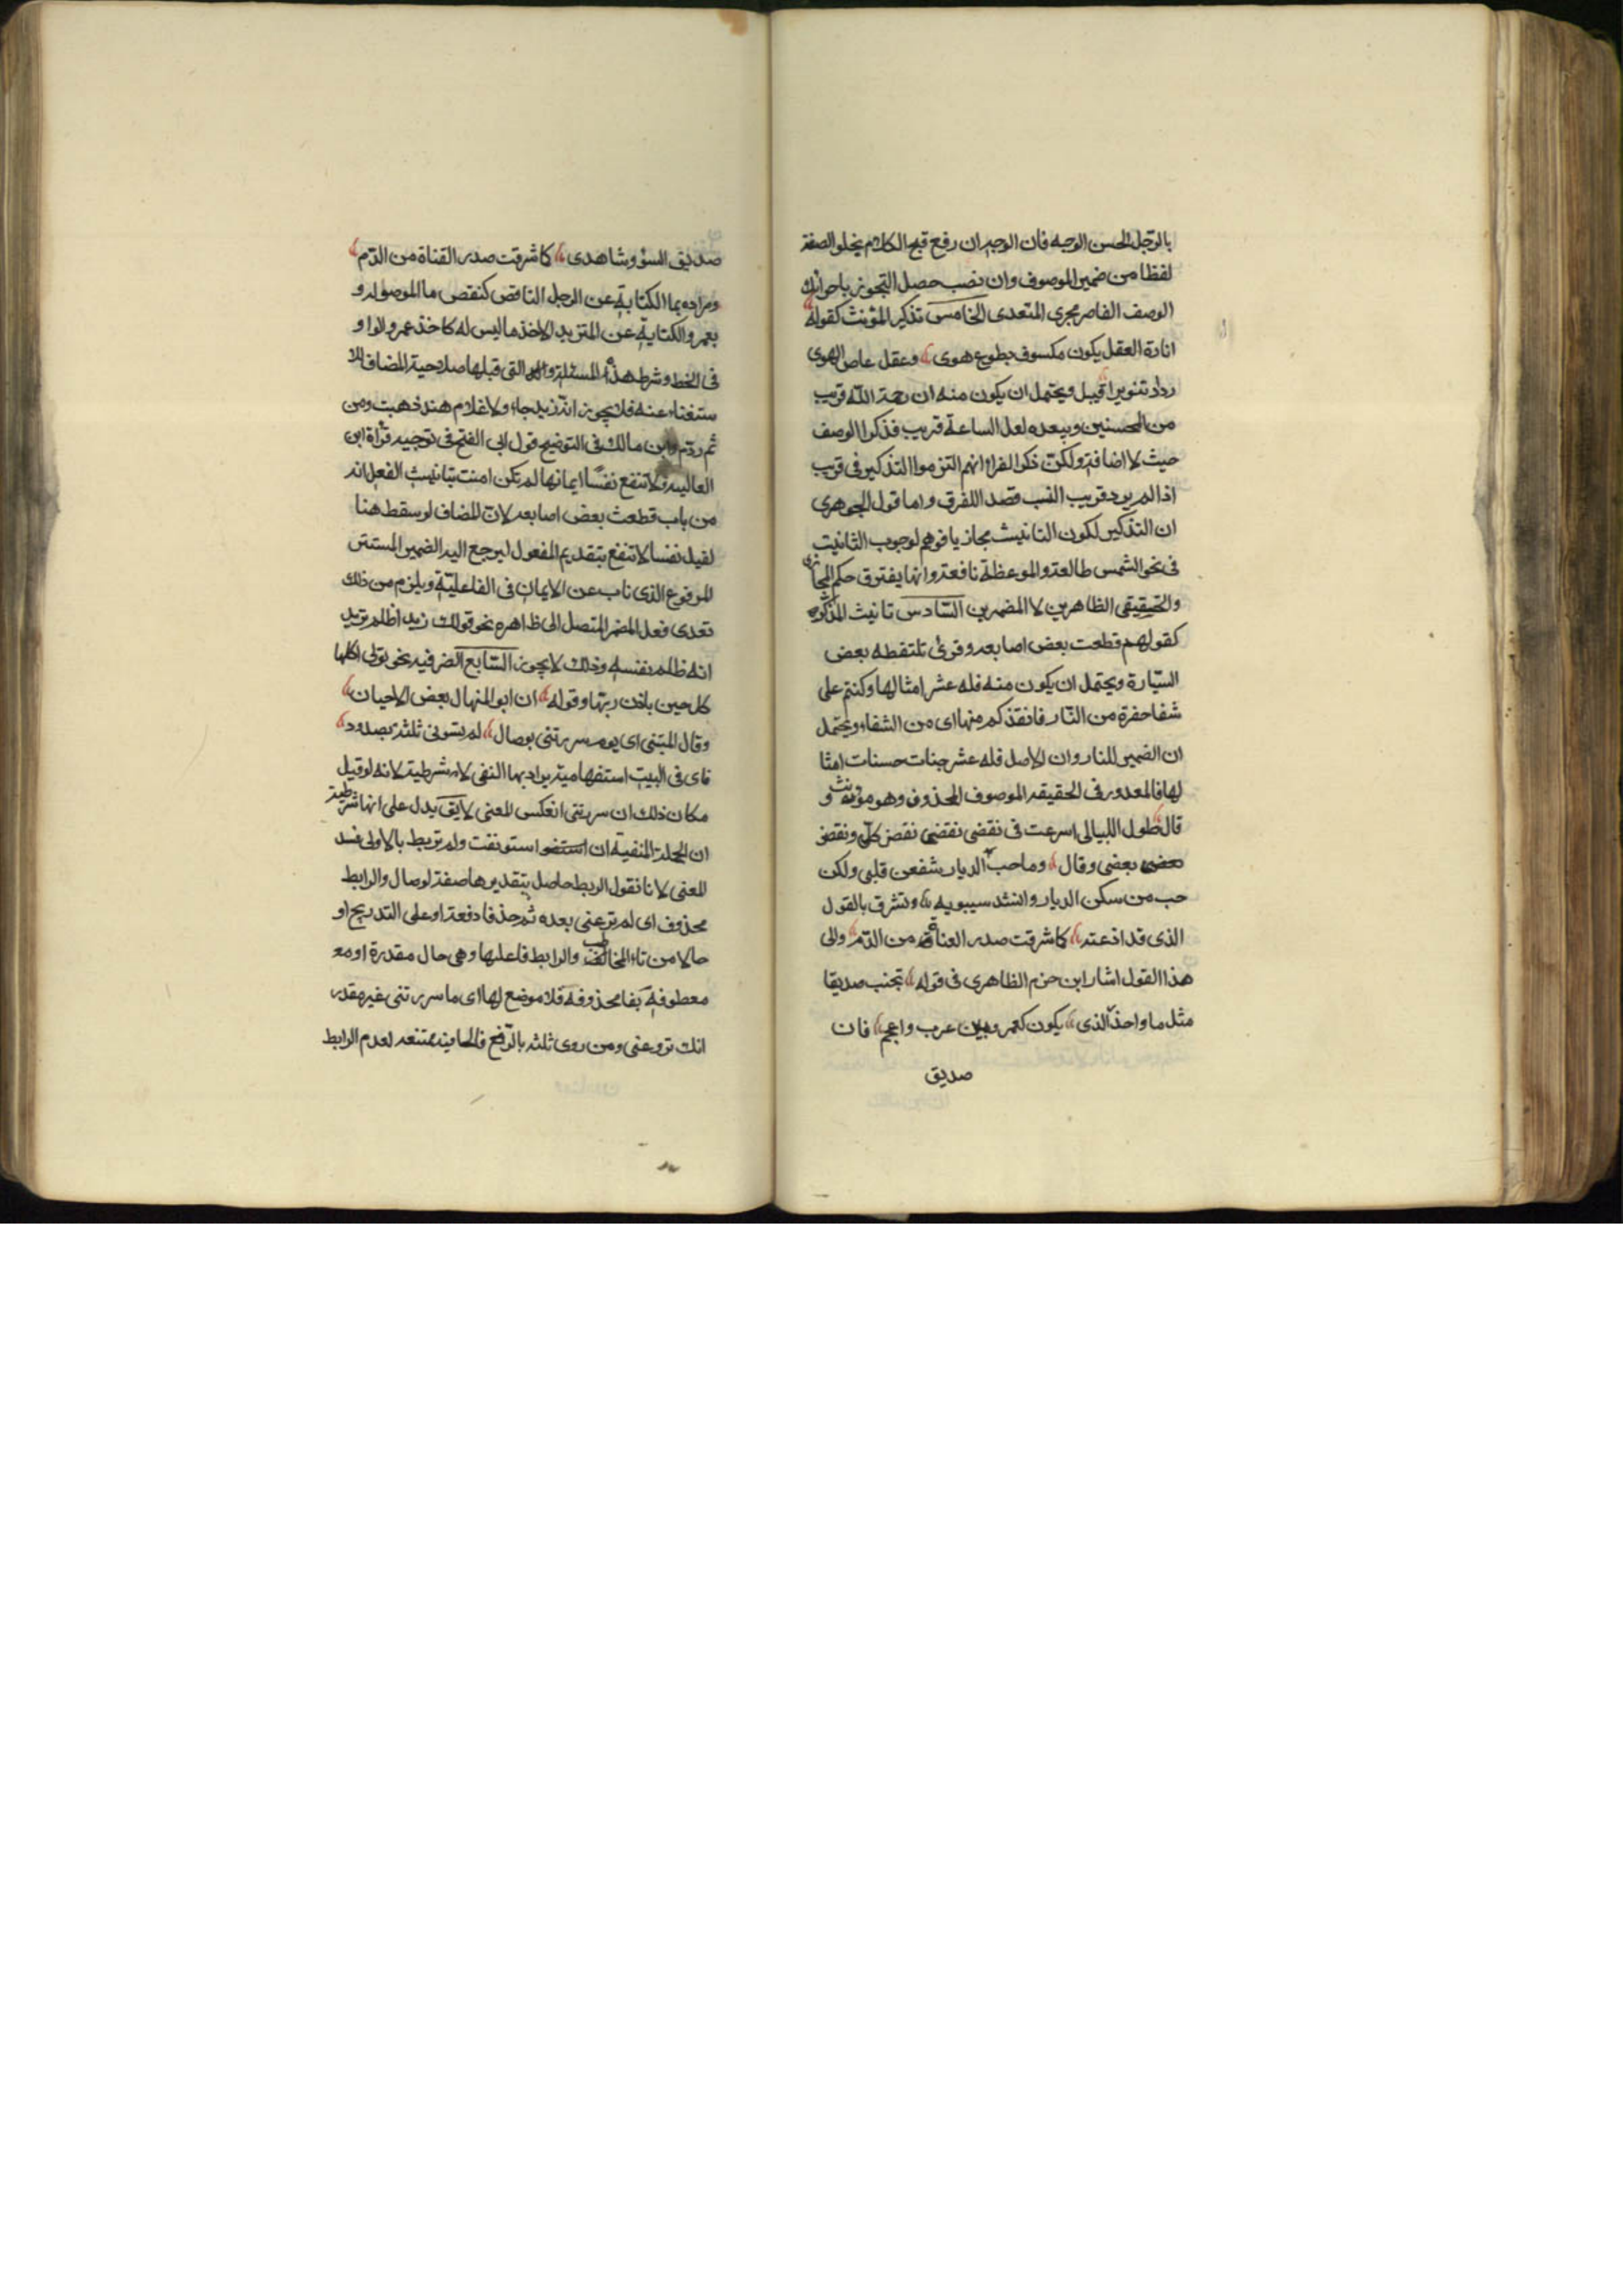 بالرّجل الحسن الوجه فان الوجه ان رفع قبح الكلام يخلو الصفة
لفظا من ضمير الموصوف وان نصب حصل التجوز باجرائك
الوصف القاصر مجرى المتعدى الخامس تذكير المؤنث كقوله
انارة العقل يكون مكسوف بطوع هوى وعقل عاص الهوى
زداد تنويرا قيل ويحتمل ان يكون منه ان رحمة اللّه قريب
من المحسنين ويبعده لعل الساعة قريب فذكر الوصف
حيث لا اضافة ولكن ذكر الفراء انهم التزموا التذكير فى قريب
اذا لم يرد قريب النسب قصد اللفرق واما قول الجوهرى
ان التذكير لكون التانيث مجازيا فوهم لوجوب الثانيت
فى نحو الشمس طالعة والموعظة نافعة وانما يفترق حكم المجازى
والحقيقى الظاهرين لا المضمرين السّادس تانيث المذكر
كقولهم قطعت بعض اصابعه وقرئ تلتقطه بعض
السيّارة ويحتمل ان يكون منه فله عشر امثالها وكنتم على
شفا حفرة من النّار فانقذكم منها اى من الشفا ويحتمل
ان الضمير للنار وان الاصل فله عشر جنات حسنات امثا
لها فالمعدور فى الحقيقه الموصوف المحذوف وهو مؤنث و
قال طول الليالى اسرعت فى نقضى نقضى نقضن كلى ونقضن
بعضى بعضى وقال وما حب الديار شغفن قلبى ولكن
حب من سكن الديار وانشد سيبويه وتشرق بالقول
الذى قد اذعته كما شرقت صدر القناة من الدّم والى
هذا القول اشار ابن حزم الظاهرى فى قوله تجنب صديقا
مثل ما واحذر الذى يكون كعمرو بين عرب واعجم فان
صديق
صديق السؤ وشاهدى كما شرقت صدر القناة من الدّم
ومراده بما الكناية عن الرجل الناقص كنقص ما الموصوله و
بعمرو الكناية عن المتزيد الاخذ ما ليس له كاخذ عمرو الواو
فى الخط وشرط هذه المسئلة والتى قبلها صلاحية المضاف للا
ستغناء عنه فلا يجوز امة زيد جاء ولا غلام هند ذهبت ومن
ثم ردّ ابن مالك فى التوضيح قول ابى الفتح فى توجيه قراة ابى
العاليه لا تنفع نفسا ايمانها لم تكن امنت بتانيث الفعل انه
من باب قطعت بعض اصابعه لان المضاف لو سقط هنا
لقيل نفسا لا تنفع بتقديم المفعول ليرجع اليه الضمير المستتر
المرفوع الذى ناب عن الايمان فى الفاعليّة ويلزم من ذلك
تعدى فعل المضمر المتصل الى ظاهره نحو قولك زيدا ظلم تريد
انه ظلم نفسه وذلك لا يجوز السّابع الضرفيه نحو تؤتى اكلها
كل حين باذن ربّها وقوله ان ابو المنهال بعض الاحيان
وقال المتنبى اى يوم سررتنى بوصال لم تسونى ثلثة بصدود
فاى فى البيت استفهامية يراد بها النفى لا شرطية لانه لو قيل
مكان ذلك ان سررتنى انعكس المعنى لا يق يدل على انها شرطية
ان الجملة المنفية ان استونفت ولم تربط بالاولى فسد
المعنى لانا نقول الربط حاصل بتقديرها صفة لوصال والرابط
محذوف اى لم ترعنى بعده ثم حذفا دفعة او على التدريج او
حالا من تاء المخاطب والرابط فاعلها وهى حال مقدرة او مع
معطوفه بفا محذوفه فلا موضع لها اى ما سررتنى غير مقدر
انك تروعنى ومن روى ثلثه بالرّفع فالحاليه ممتنعه لعدم الرابط